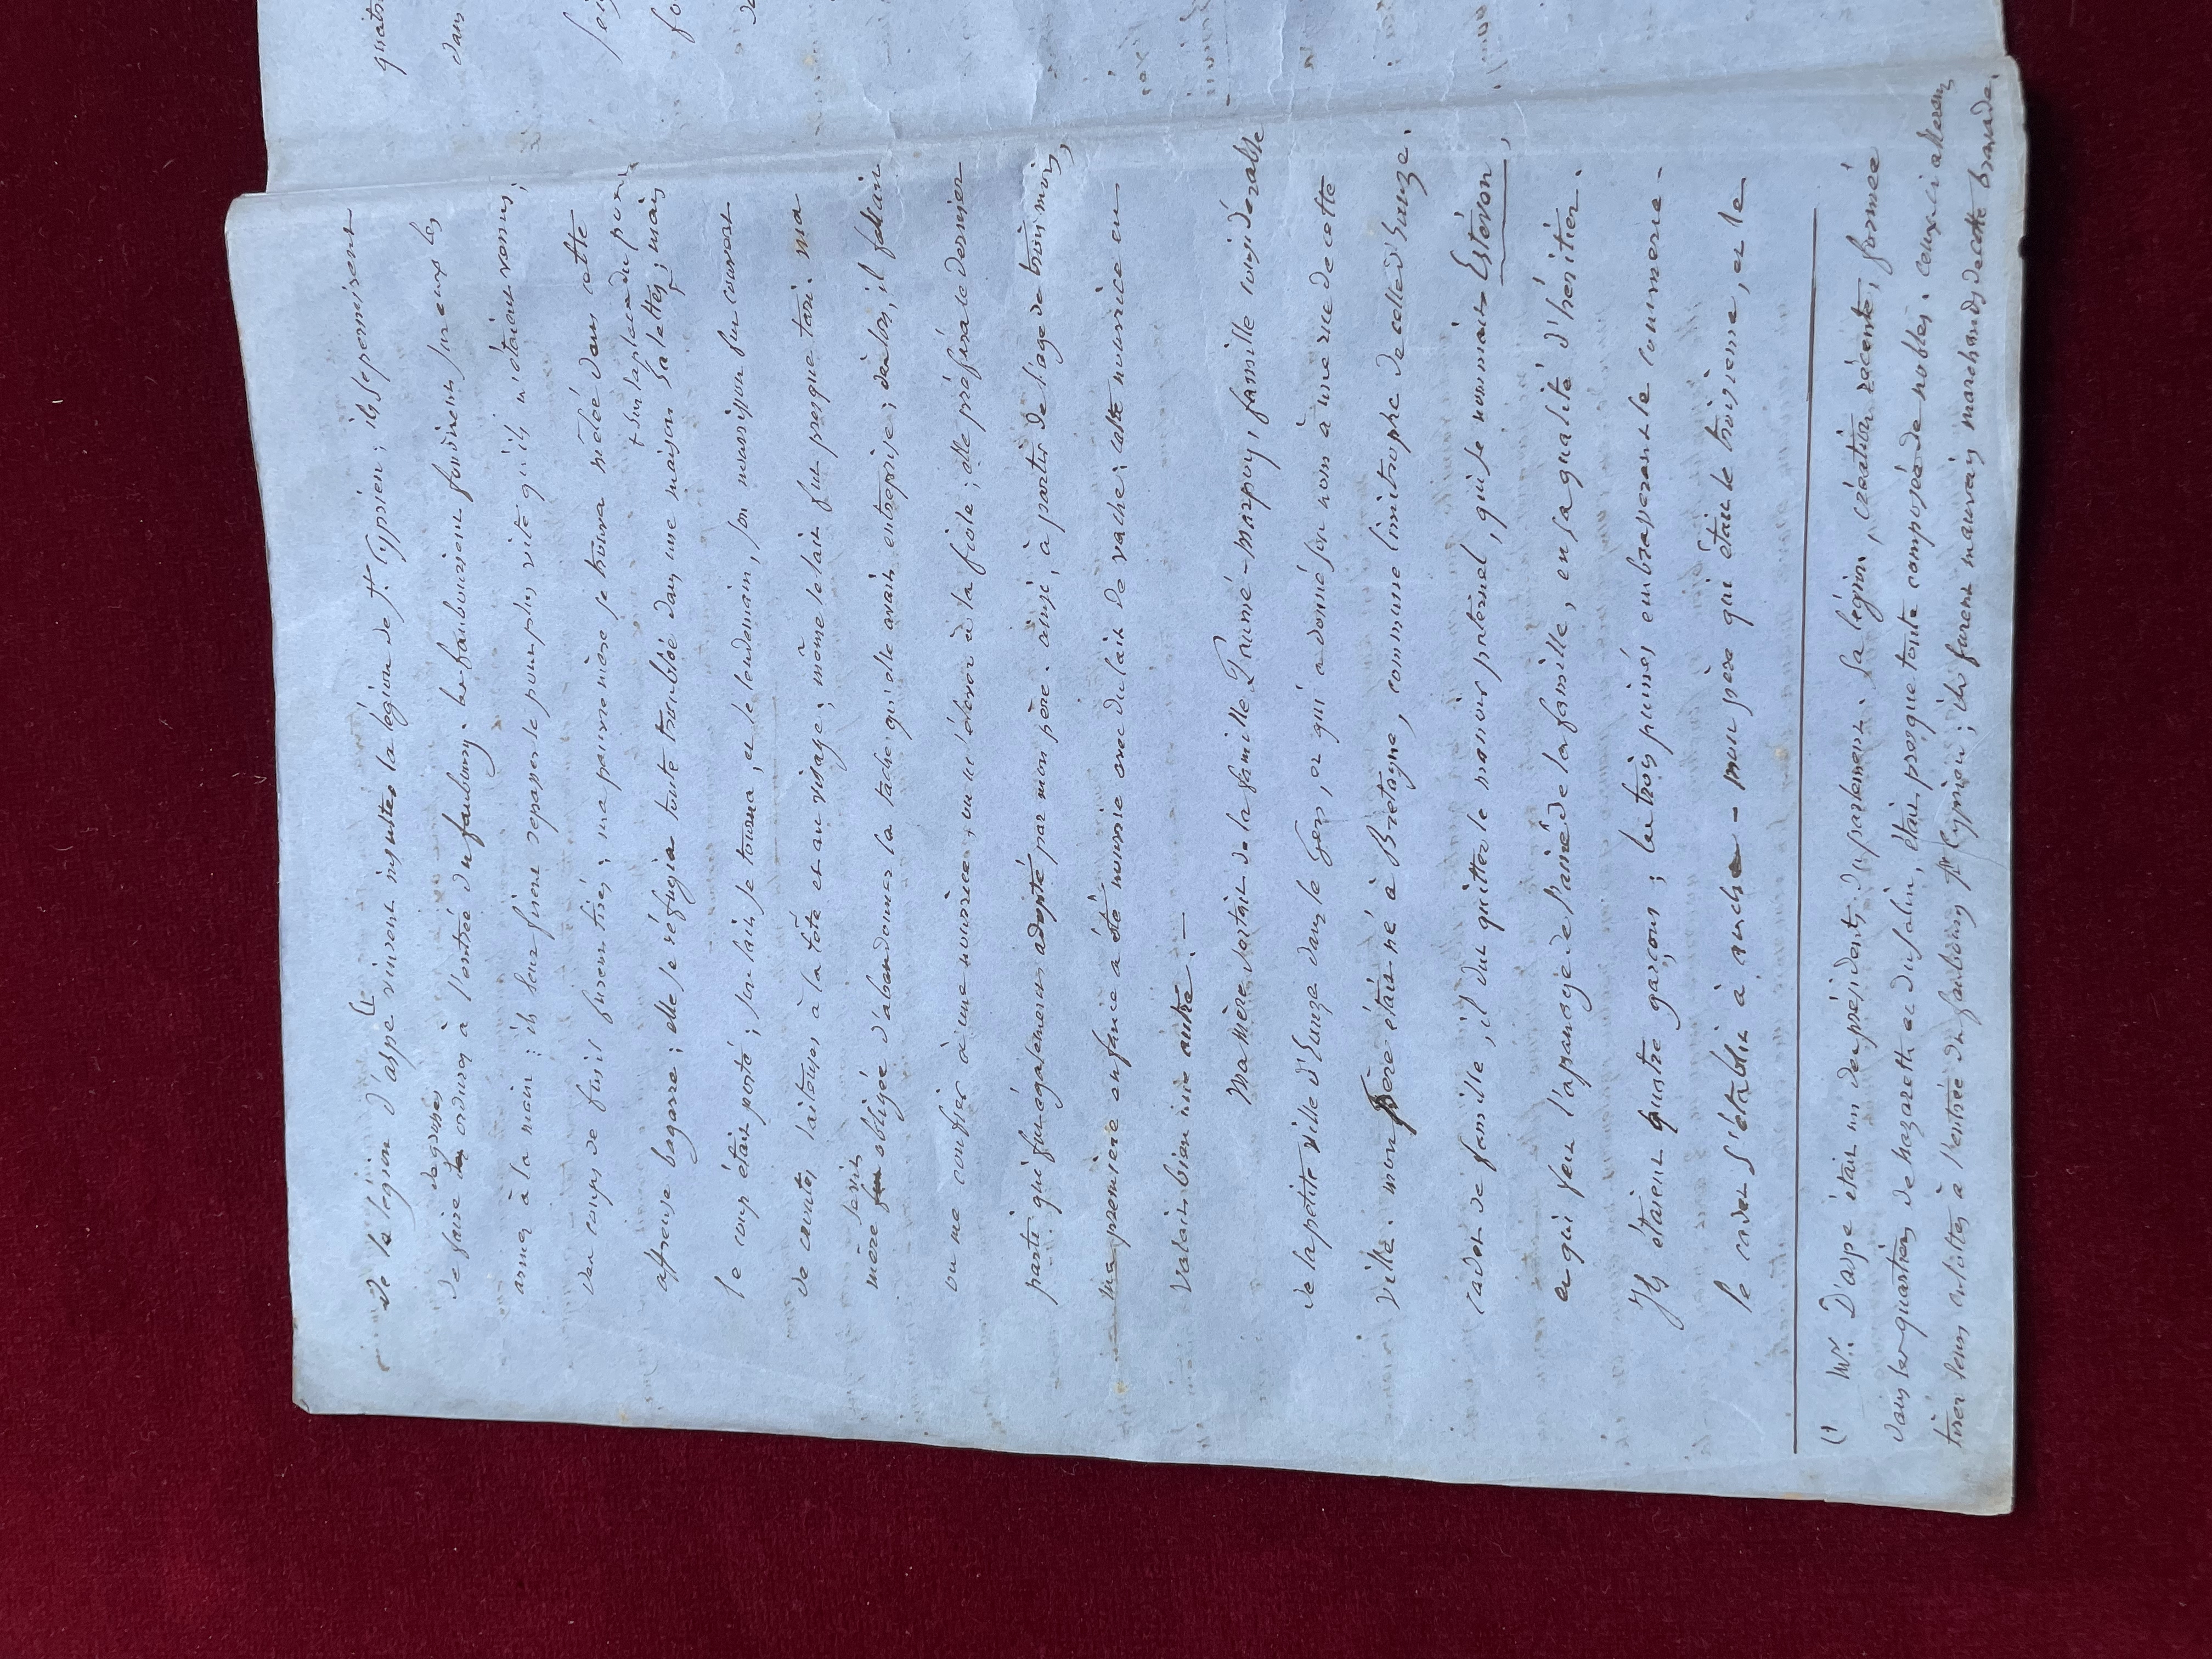 de la légion d'aspe (1 vinrent insulter la légion de St. Cyprien ; ils se permirent
de faire des grosses ordures à l'entrée du faubourg. les faubouriens fondirent sur eux les
armes à la main : ils leur firent repasser le pont plus vite qu'ils n'étaient venus ;
des coups de fusil furent tirés ; ma pauvre mère se trouva mêlée dans cette
affreuse bagarre ; elle se réfugia toute troublée dans une maison + sur la place du pont, galetas ; mais
le coup était porté ; son lait se tourna, et le lendemain, son nourrisson fut couvert
de croutes laiteuses à la tête et au visage ; même le lait fut presque tari. ma
mère se vit obligée d'abandonner la tâche qu'elle avait entreprise ; dès lors, il fallait
ou me confier à une nourrice, ou m'élever à la fiole ; elle préféra le dernier
parti qui fut également adopté par mon père. ainsi, à partir de l'age de trois mois,
ma première enfance a été nourrie avec du lait de vache ; cette nourrice en
valait bien une autre. —
Ma mère sortait de la famille, famille considérable
de la petite ville d'Eauze dans le Gers, et qui a donné son nom à une rue de cette
ville. mon père était né à Bretagne, commune limitrophe de celle d'Eauze.
cadet de famille, il dut quitter le manoir paternel, qui se nommait Estévon,
et qui fut l'apanage de l'ainé de la famille, en sa qualité d'héritier.
Ils étaient quatre garçons ; les trois puinés embrassèrent le commerce -
le cadet s'établit à auch - mon père qui était le troisieme, et le
(1 Mr. D'aspe était un des présidents du parlement. sa légion, création récente, formée
dans les quartiers de nazareth et du salin, était presque toute composée de nobles. ceux-ci allèrent
tirer leurs culottes à l'entrée du faubourg St Cyprien ; ils furent mauvais marchands de cette bravade.